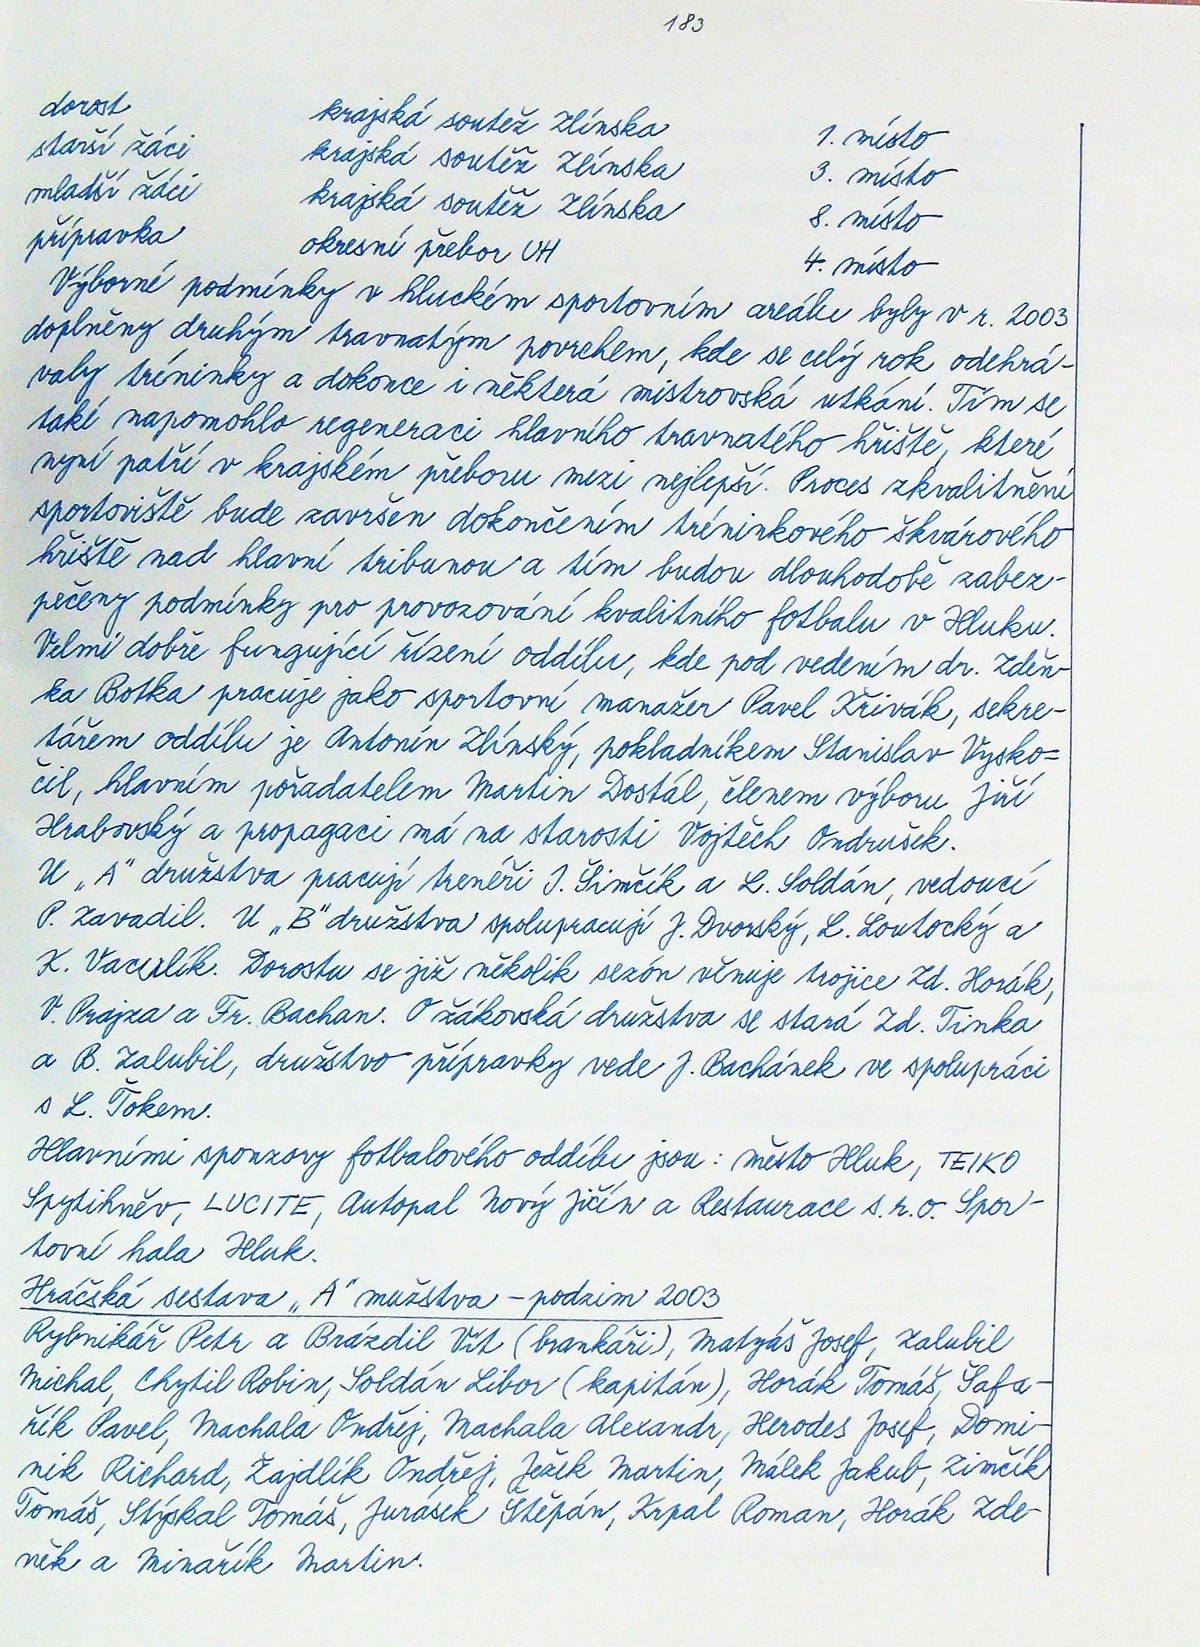 183
dorost krajská soutěž Zlínska 1. místo
starší žáci krajská soutěž Zlínska 3. místo
mladší žáci krajská soutěž Zlínska 8. místo
přípravka okresní přebor UH 4. místo
Výborné podmínky v hluckém sportovním areálu byly v r. 2003
doplněny druhým travnatým povrchem, kde se celý rok odehrá-
valy tréninky a dokonce i některá mistrovská utkání. Tím se
také napomohlo regeneraci hlavního travnatého hřiště, které
nyní patří v krajském přeboru mezi nejlepší. Proces zkvalitnění
sportoviště bude završen dokončením tréninkového škvárového
hřiště nad hlavní tribunou a tím budou dlouhodobě zabez-
pečeny podmínky pro provozování kvalitního fotbalu v Hluku.
Velmi dobře fungující řízení oddílu, kde pod vedením dr. Zdeň-
ka Botka pracuje jako sportovní manažer Pavel Křivák, sekre-
tářem oddílu je Antonín Zlínský, pokladníkem Stanislav Vysko=
čil, hlavním pořadatelem Martin Dostál, členem výboru Jiří
Hrabovský a propagaci má na starosti Vojtěch Ondrůšek.
U „A" družstva pracují trenéři J. Šimčík a L. Soldán, vedoucí
P. Zavadil. U „B" družstva spolupracují J. Dvorský, L. Loutocký a
K. Vaculík. Dorostu se již několik sezón věnuje trojice Zd. Horák,
V. Prajza a Fr. Bachan. O žákovská družstva se stará Zd. Tinka
a B. Zalubil, družstvo přípravky vede J. Bachánek ve spolupráci
s L. Tokem.
Hlavními sponzory fotbalového oddílu jsou: město Hluk, TEIKO
Spytihněv, LUCITE, Autopal Nový Jičín a Restaurace s.r.o. Spor-
tovní hala Hluk.
Hráčská sestava „A" mužstva - podzim 2003
Rybnikář Petr a Brázdil Vít (brankáři), Matyáš Josef, Zalubil
Michal, Chytil Robin, Soldán Libor (kapitán), Horák Tomáš, Šafa-
řík Pavel, Machala Ondřej, Machala Alexandr, Herodes Josef, Domi-
nik Richard, Zajdlík Ondřej, Ježík Martin, Málek Jakub, Zimčík
Tomáš, Stýskal Tomáš, Jurásek Štěpán, Krpal Roman, Horák Zde-
něk a Minařík Martin.